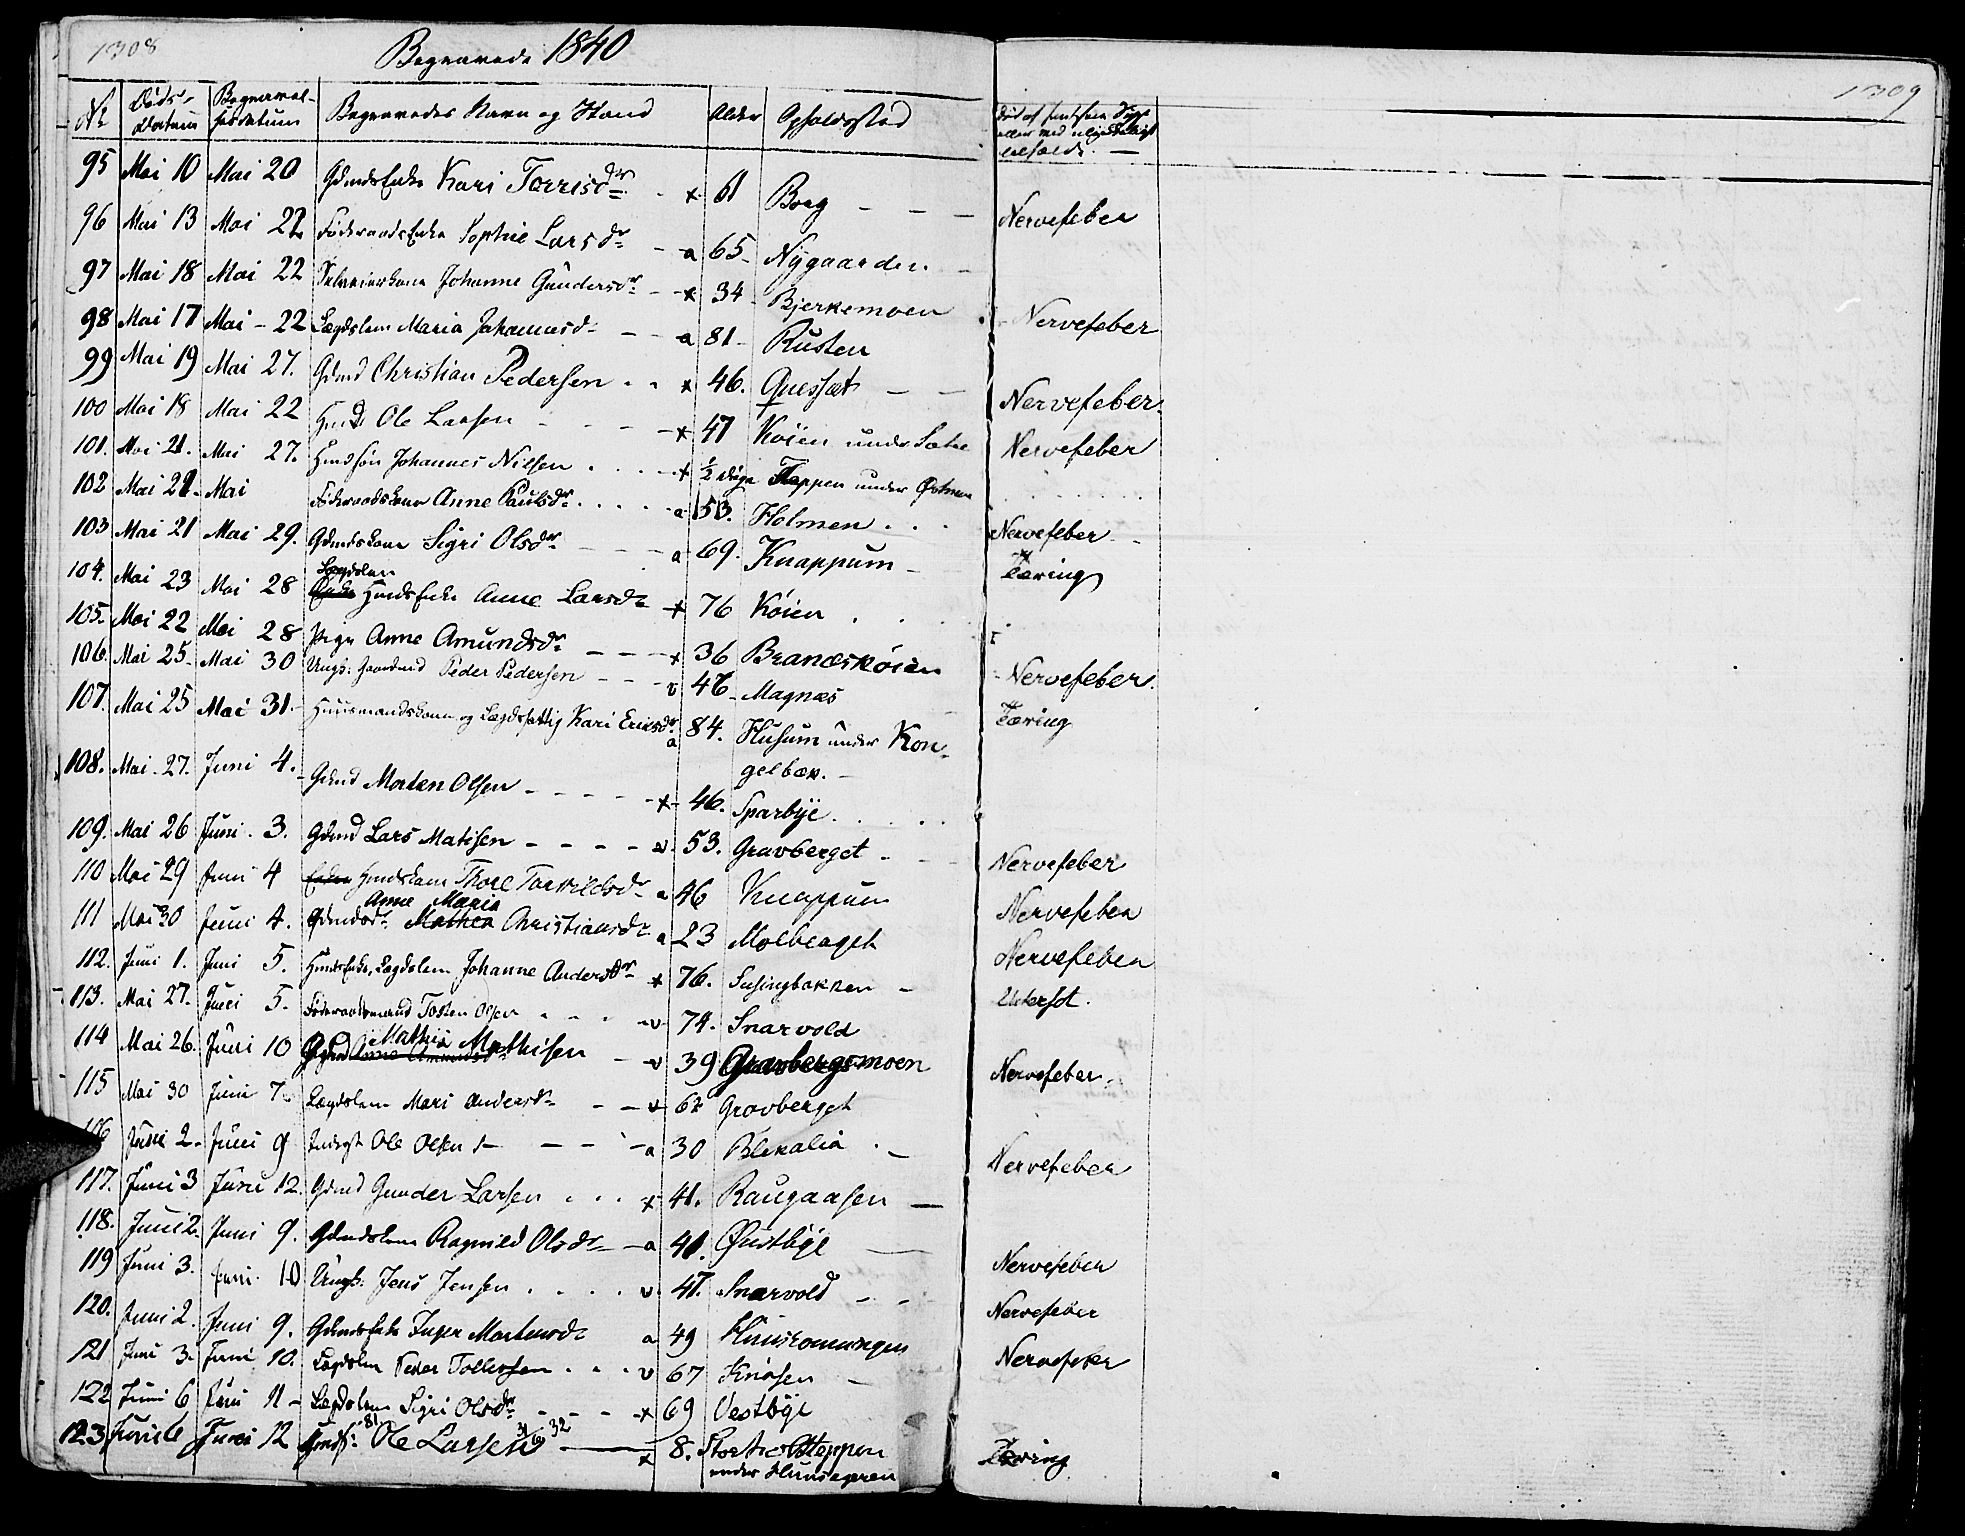 1308
Begravede 1840
1309
No Døds-Datum Begravelsesdatum Begravedes Navn og Stand Alder Opholdssted
95 Mai 10 Mai 20 Gdmdsenke Kari Torrisdr x 61 Borg - - - Nervefeber
96 Mai 13 Mai 22 Föderaadsenke Sophie Larsdr - a 65 - Nÿgaarden -
97 Mai 18 Mai 22 Selveierkone Johanne Gundersdr - - x 34 - Bjerkemoen Nervefeber
98 Mai 17 Mai - 22 Lægdslem Maria Johannesdr - - a 81 - Rusten
99 Mai 19 Mai 27. Gdmd Christian Pedersen . . x 46. Quessæt - - Nervefeber.
100 Mai 18 Mai 22 Hmd Ole Larsen - - - - x 47 Köien under Sætre Nervefeber
101. Mai 21. Mai 27. Hmdsøn Johannes Nilsen . . . - x 1/2 Tæppen under
102 Mai 21. Mai Föderaadskone Anne Paulsdr . . . . . a 53. Holmen . . . Nervefeber -
103 Mai 21 Mai 29. Gdmdskone Sigri Olsdr - - - a 69. Knappum - Tæring
104. Mai 23 Mai 28 Lægdslem Hmdsenke Anne Larsdr - x 76 Köien . . .
105. Mai 22 Mai 28 Pige Anne Amundsdr - - - x 36 Brandsköien Nervefeber.
106 Mai 25 - Mai 30 Ungk: Peder Pedersen - - - v 46 - Magnæs Tæring
107. Mai 25 Mai 31. - Huusmandskone og Lægdsfattig Kari Ericsdr a 84. Husum under Kon-
gelbæk. -
108. Mai - 27. Juni 4. - Gdmd Morten Olsen - - - - x - 46. Sparbÿe . . . . .
109. Mai 26 Juni . 3. Gdmd Lars Matisen - - - - v. 53. Gravberget - - - Nervefeber
110 Mai 29 Juni 4 Hmdskone Thore Torkildsdr a 46 Knappum Nervefeber
Anne Maria
111 Mai 30 Juni 4. Gdmdsdr Mathea Christiansdr a 23 Molberget Nervefeber
112. Juni 1. Juni 5. Hmdsenke, Lægdslem Johanne Andersdr x 76. Susingbakken - Vatersot.
113. Mai 27. Juni 5. Föderaadsmand Tosten Olsen . . . . v. 74. Snarvold
114 Mai 26. Juni 10 Mathias Mathisen - v 39 Gravbergsmoen Nervefeber -
115 Mai 30 Juni 7 Lægdslem Mari Andersdr - - v 62 Gravberget
116 Juni 2 - Juni 9 Inderst Ole Olsen - - - - a 30 Blekalia . - Nervefeber
117. Juni 3 Juni 12. Gdmd Gunder Larsen . . . x 41. Raugaasen -
118. Juni 2. Juni 9. Gdmdslem Ragnild Olsdr - a 41. Østbÿe - Nervefeber
119 Juni 3. Juni . 10 Ungk: Jens Jensen . . . . v. 47. Snarvold - - Nervefeber
120. Juni 2. Juni 9. Gdmdsenke Inger Mortensdr a 49 Nervefeber
121 Juni 3. Juni 10. Lægdslem Peder Tollefsen . . . v 67 Knösen -
122 Juni 6 Juni 11 - Lægdslem Sigri Olsdr - - - x 69 Vestbÿe
123 Juni 6 Juni 12 Ole Larsen x 8. under Huusegeren Tæring